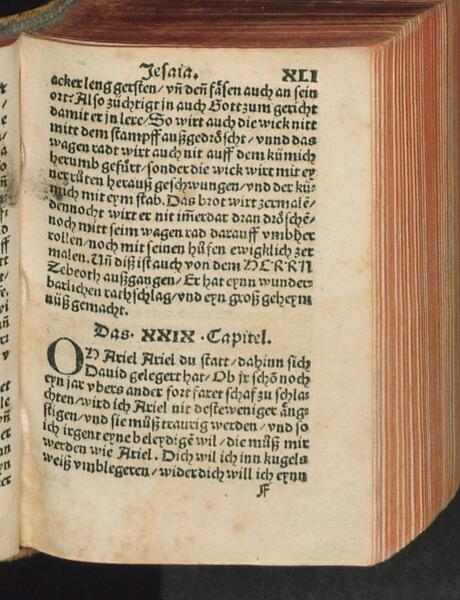 Jesaia. XLI
acker leng gersten/ vñ den fäsen auch an sein
ort? Also züchtigt jn auch Gott zum gericht
damit er jn lere/ So wirt auch die wick nitt
mitt dem stampff außgedröscht/ vnnd das
wagen radt wirt auch nit auff dem kümich
herumb gefürt/ sonder die wick wirt mit ey
ner rüten herauß geschwungen/ vnd der kü-
mich mit eym stab. Das brot wirt zermalē/
dennocht wirt er nit im̄erdar dran dröschē-
noch mitt seim wagen rad darauff vmbher
rollen/ noch mit seinen hüfen ewigklich zer
malen. Uñ diß ist auch von dem HERRN
Zebeoth außgangen/ Er hat eynn wunder-
barlichen rathschlag/ vnd eyn groß geheym
nüß gemacht.
Das· XXIX ·Capitel.
OH Ariel Ariel du statt/ dahinn sich
Dauid gelegert hat/ Ob jr schō noch
eyn jar vbers ander fort faret schaf zu schla-
chten/ wird ich Ariel nit desteweniger ängs-
stigen/ vnd sie müß traurig werden/ vnd so
ich irgent eyne beleydigē wil/ die müß mir
werden wie Ariel. Dich wil ich inn kugels
weiß vmblegeren/ wider dich will ich eynn
F